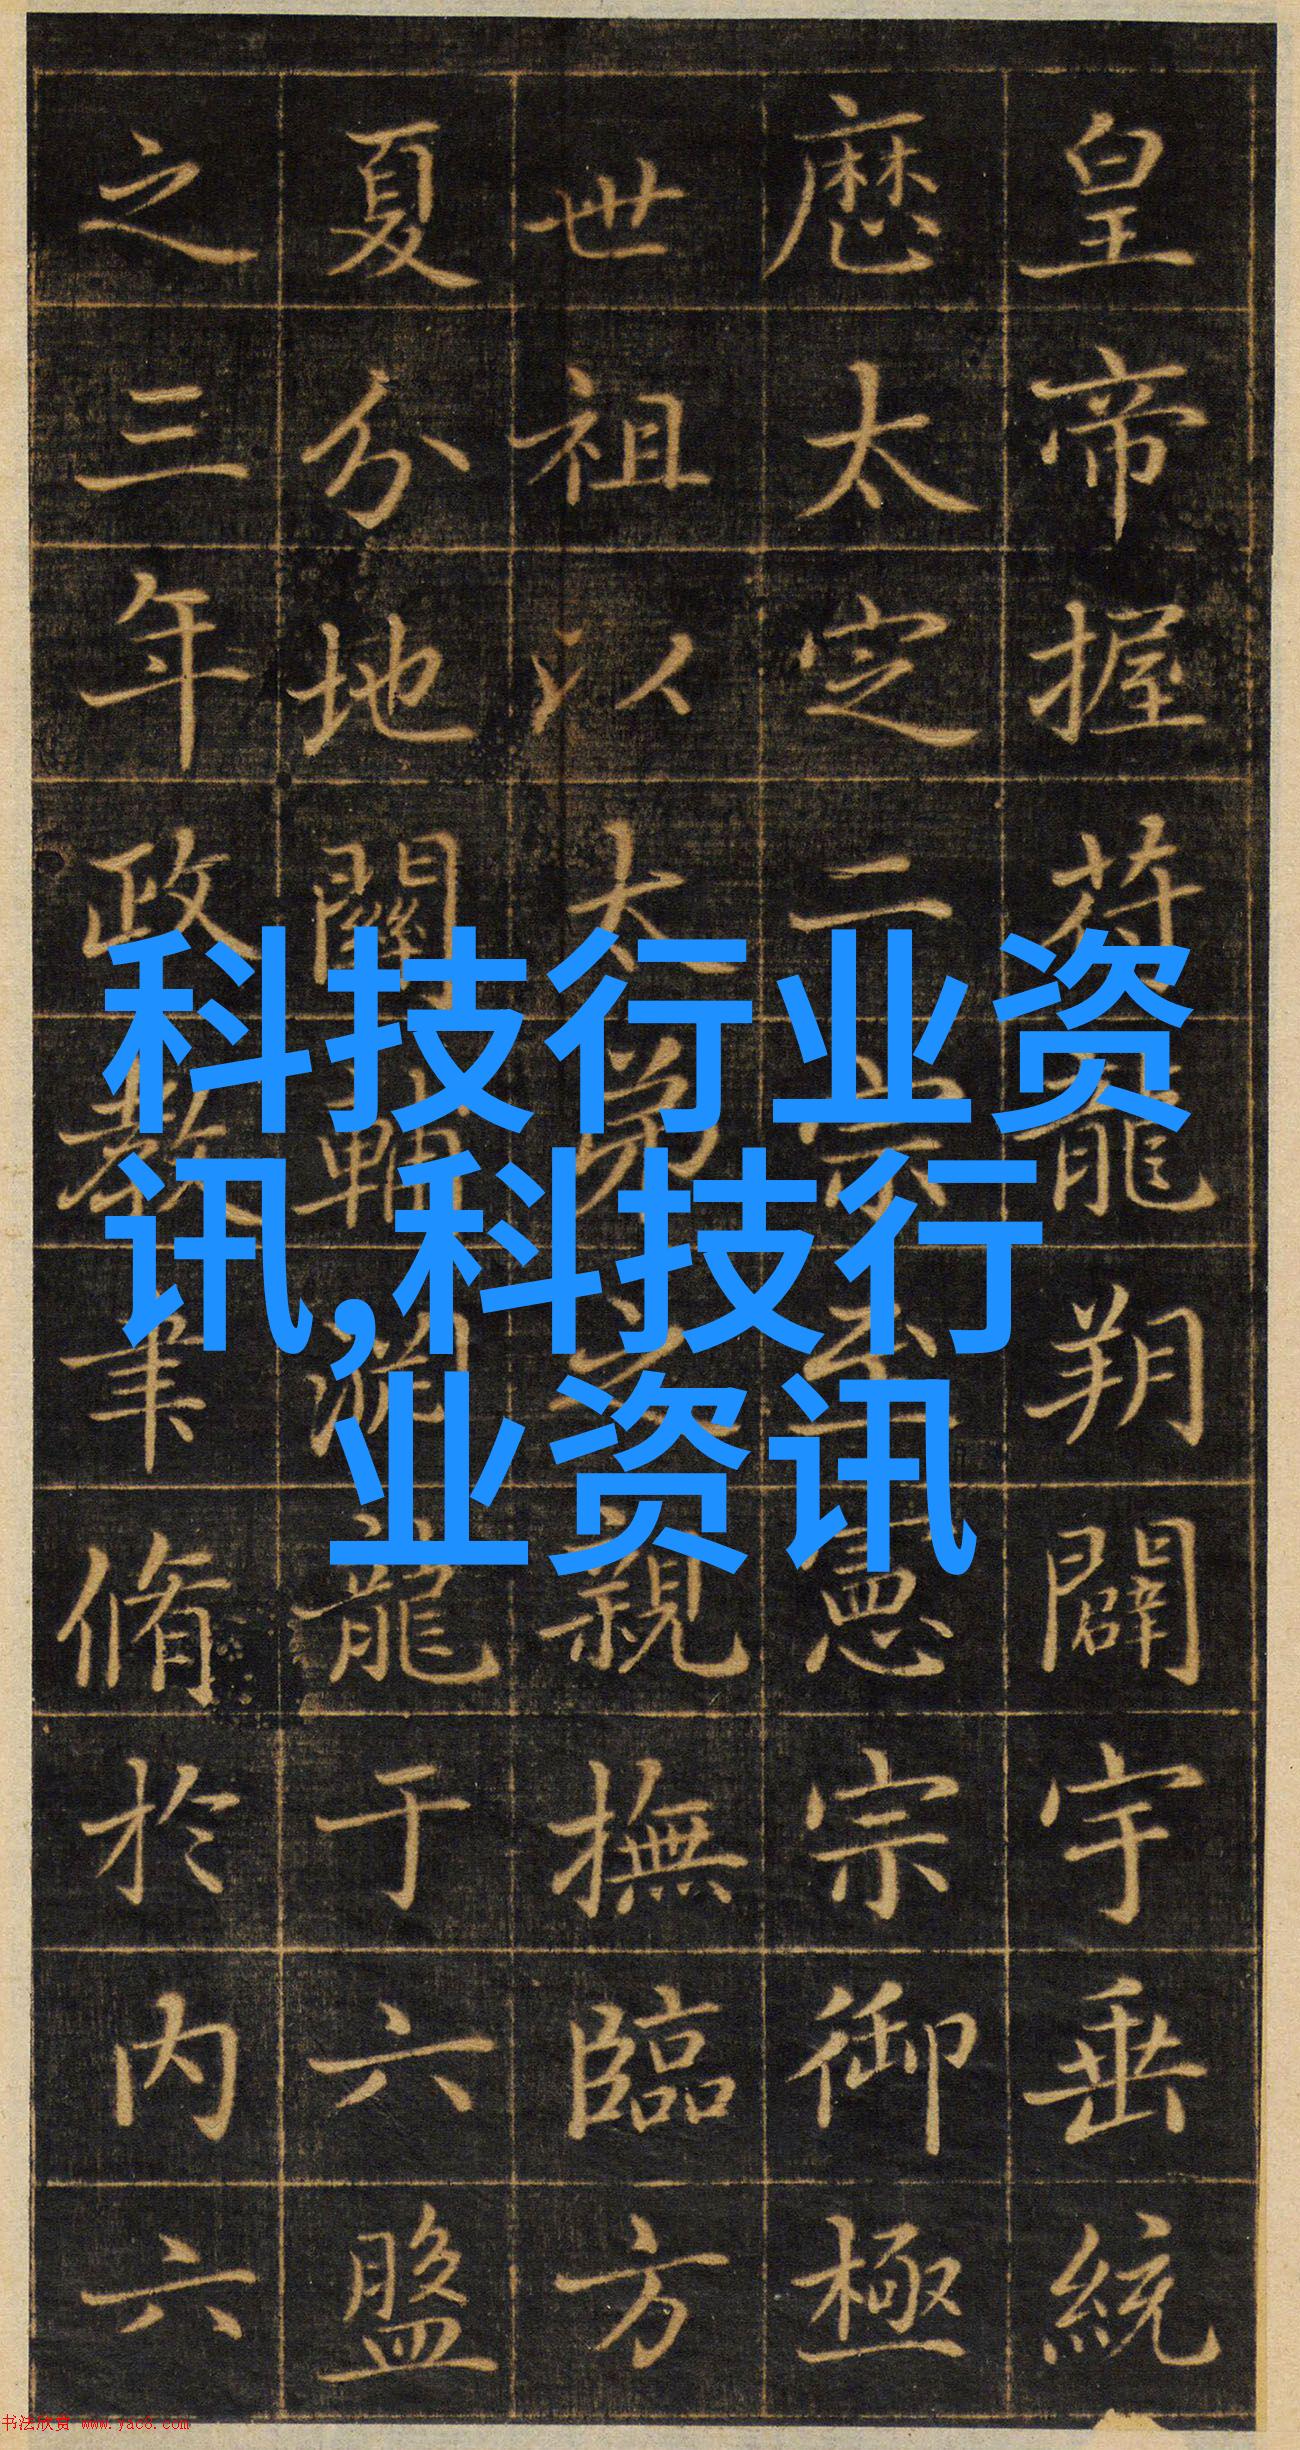 皇帝握苻龍朔闢宇垂統
歷太定二宗至憲宗御極
世祖以大弟之親撫臨方
夏分地關輔淵龍于六盤
之三年政教聿脩於内六
科技行业资
讯,科技行
业资讯
书法欣赏 www.yac8.com